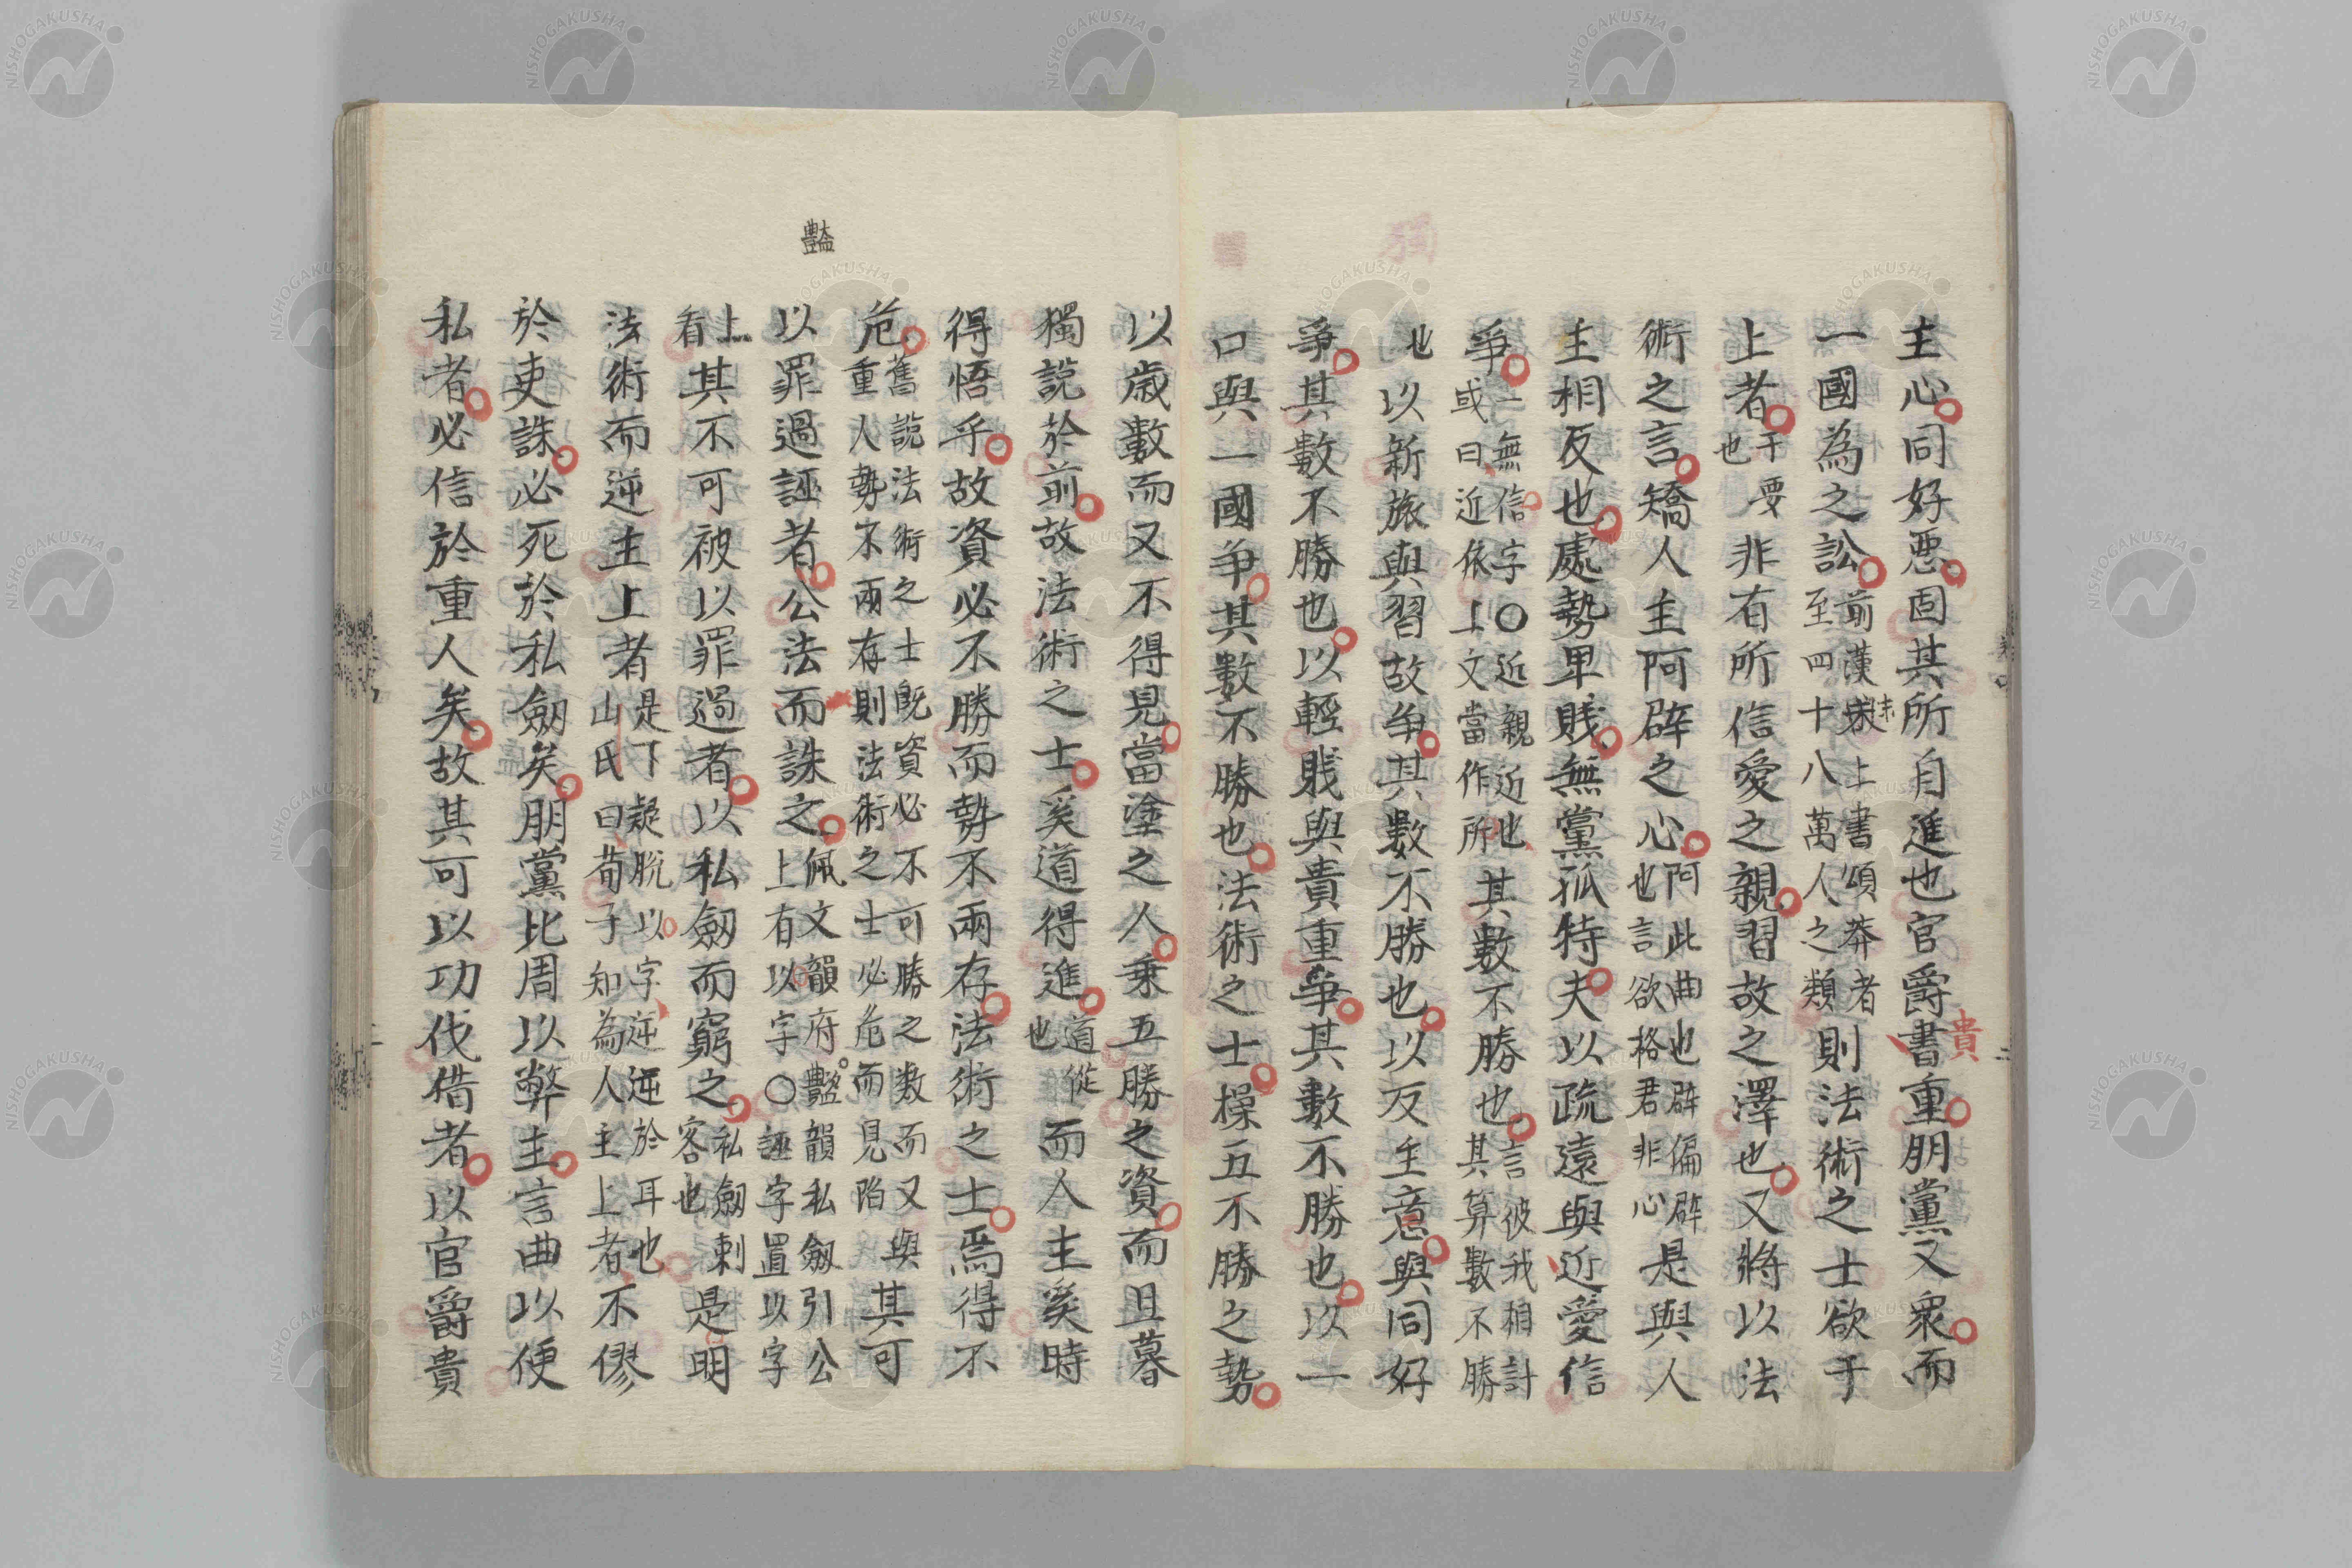 主心同好惡固其所自進也官爵書重朋黨又衆而
貴
一國為之訟前漢末上書頌莽者至四十八萬人之類則法術之士欲于
上者干要也非有所信愛之親習故之澤也又將以法
術之言矯人主阿辟之心阿此曲也辟偏辟也言欲格君非心是與人
主相反也處勢卑賤無黨孤特夫以疏遠與近愛信
爭一無信字〇近親近也或曰近依上文當作所其數不勝也言彼我相計其算數不勝
也以新旅與習故争其數不勝也以反主意與同好
爭其數不勝也以輕賤與貴重爭其數不勝也以一
口與一國争其數不勝也法術之士操五不勝之勢
以歲數而又不得見當塗之人乗五勝之資而旦暮
獨說於前故法術之士奚道得進道從也而人主奚時
得悟乎故資必不勝而勢不兩存法術之士焉得不
危舊說法術之士既資必不可勝之數而又與重人勢不兩存則法術之士必危而見陷其可
以罪過誣者公法而誅之佩文韻府豔韻私劔引公上有以字〇誣字置以字
豔
上看其不可被以罪過者以私劔而窮之私劔刺客也是明
法術而逆主上者是下疑脫以字逆逆於耳也山氏曰荀子知為人主上者不僇
於吏誅必死於私劔矣朋黨比周以弊主言曲以便
私者必信於重人矣故其可以功伐借者以官爵貴
NISHOGAKUSHA